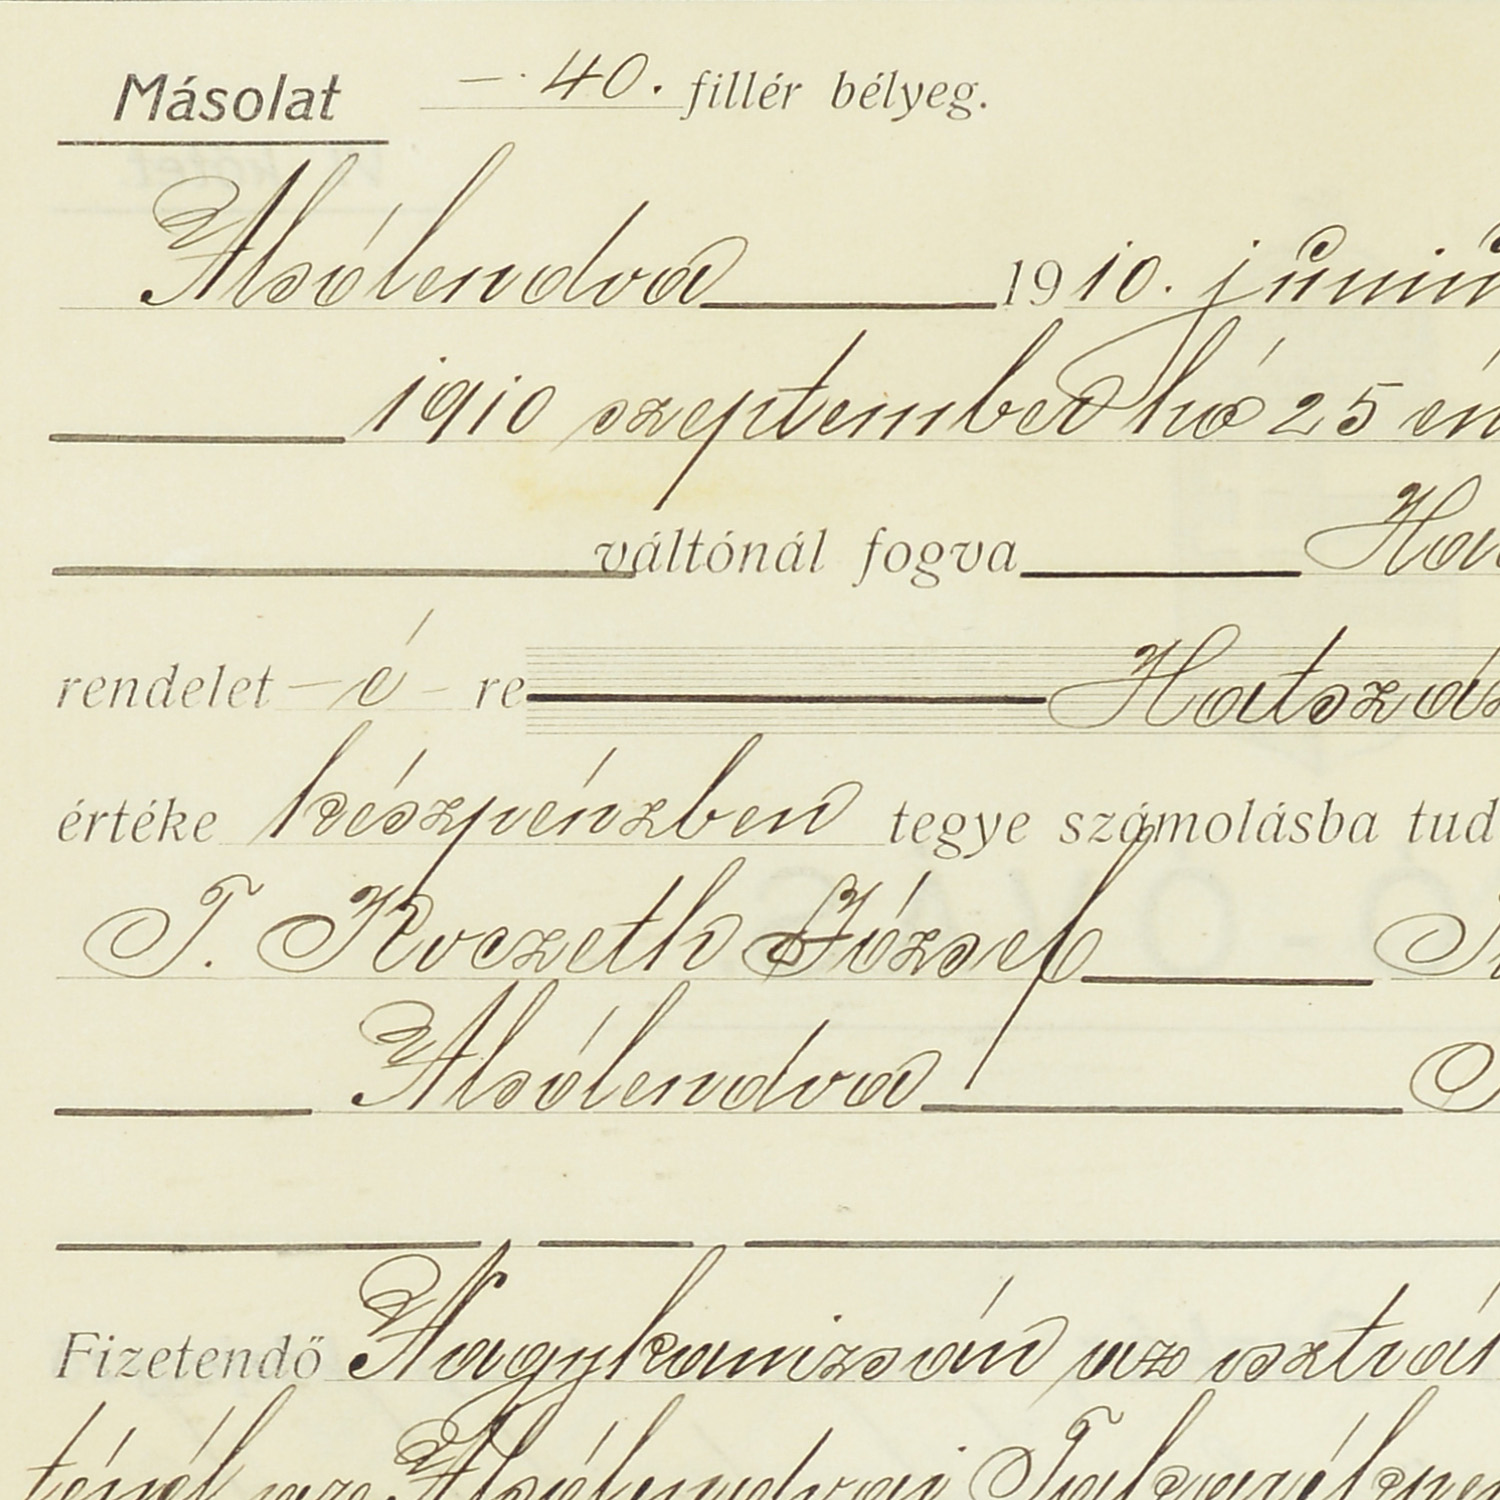 Másolat —·40. fillér bélyeg.
Alsólendva 1910. június
1910 szeptember hó 25 én
váltónál fogva
rendelet —é— re Hatszáz
értéke készpénzben tegye számolásba tud
T. Koczeth József
Alsólendva
Fizetendő Nagykanizsán az osztrák
az Alsólendvai Takarékpé